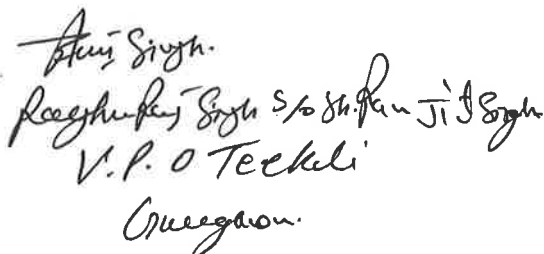 Singh.
Raghuraj Singh S/o Sh. Ran Jit Singh
V.P.O Teekli
Gurgaon.